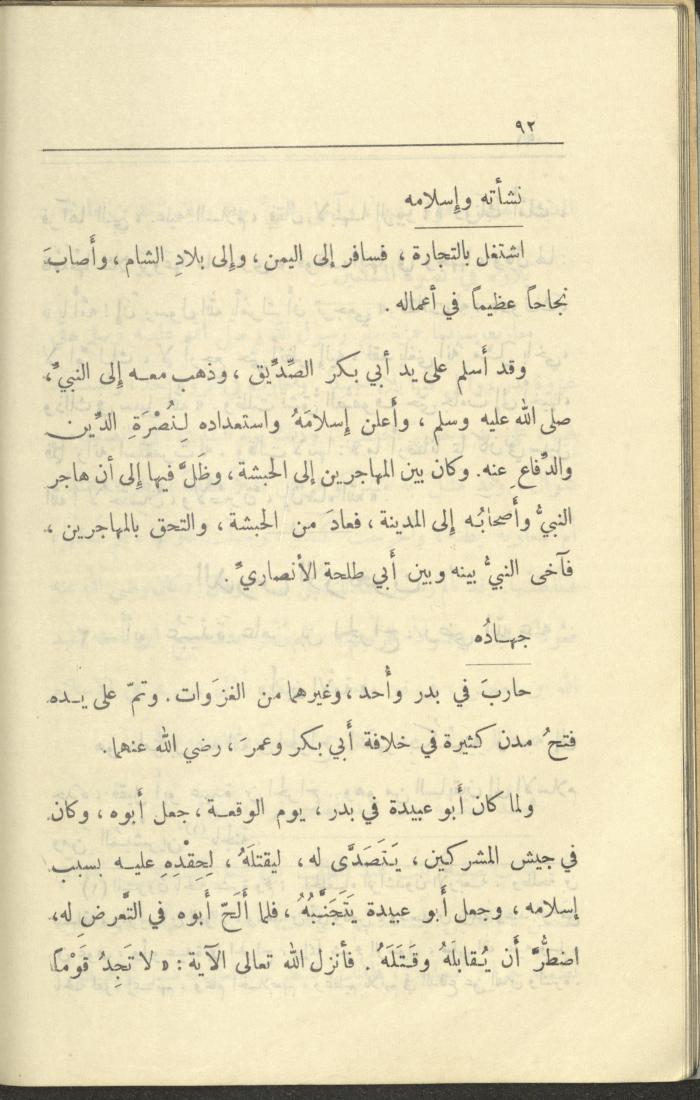 ٩٢
نشأته وإسلامه
اشتغل بالتجارة ، فسافر إلى اليمن ، وإلى بلادِ الشام ، وأَصابَ
نجاحاً عظيماً في أعماله .
وقد أَسلم على يد أبي بكر الصِّدِّيق ، وذهب معـه إِلى النبيِّ ،
صلى الله عليه وسلم ، وأَعلن إِسلامَهُ واستعداده لِنُصْرَةِ الدِّين
والدِّفاع عنه. وكان بين المهاجرين إلى الحبشة ، وظَلَّ فيها إِلى أن هاجر
النبيُّ وأَصحابُه إِلى المدينة ، فعادَ من الحبشة ، والتحق بالمهاجرين ،
فآخى النبيُّ بينه وبين أَبي طلحة الأنصاريِّ .
جهـادُه
حاربَ في بدر وأُحد ، وغيرهما من الغزَوات . وتمّ على يـده
فتحُ مدن كثيرة في خلافة أَبي بكر وعمرَ ، رضي الله عنهما .
ولما كان أَبو عبيدة في بدر ، يوم الوقعـة ، جعل أَبوه ، وكان
في جيش المشركين ، يَتَصَدَّى له ، ليقتلَهُ ، لِحِقْدِهِ عليـه بسبب
إسلامه ، وجعل أَبو عبيدة يَتَجَنَّبُهُ ، فلما أَلَحّ أَبوه في التَّعرضِ له ،
اضطُّرَّ أَن يُقابلَهُ وقَتَلَهُ . فأنزل الله تعالى الآية : « لا تَجِدُ قَوْماً